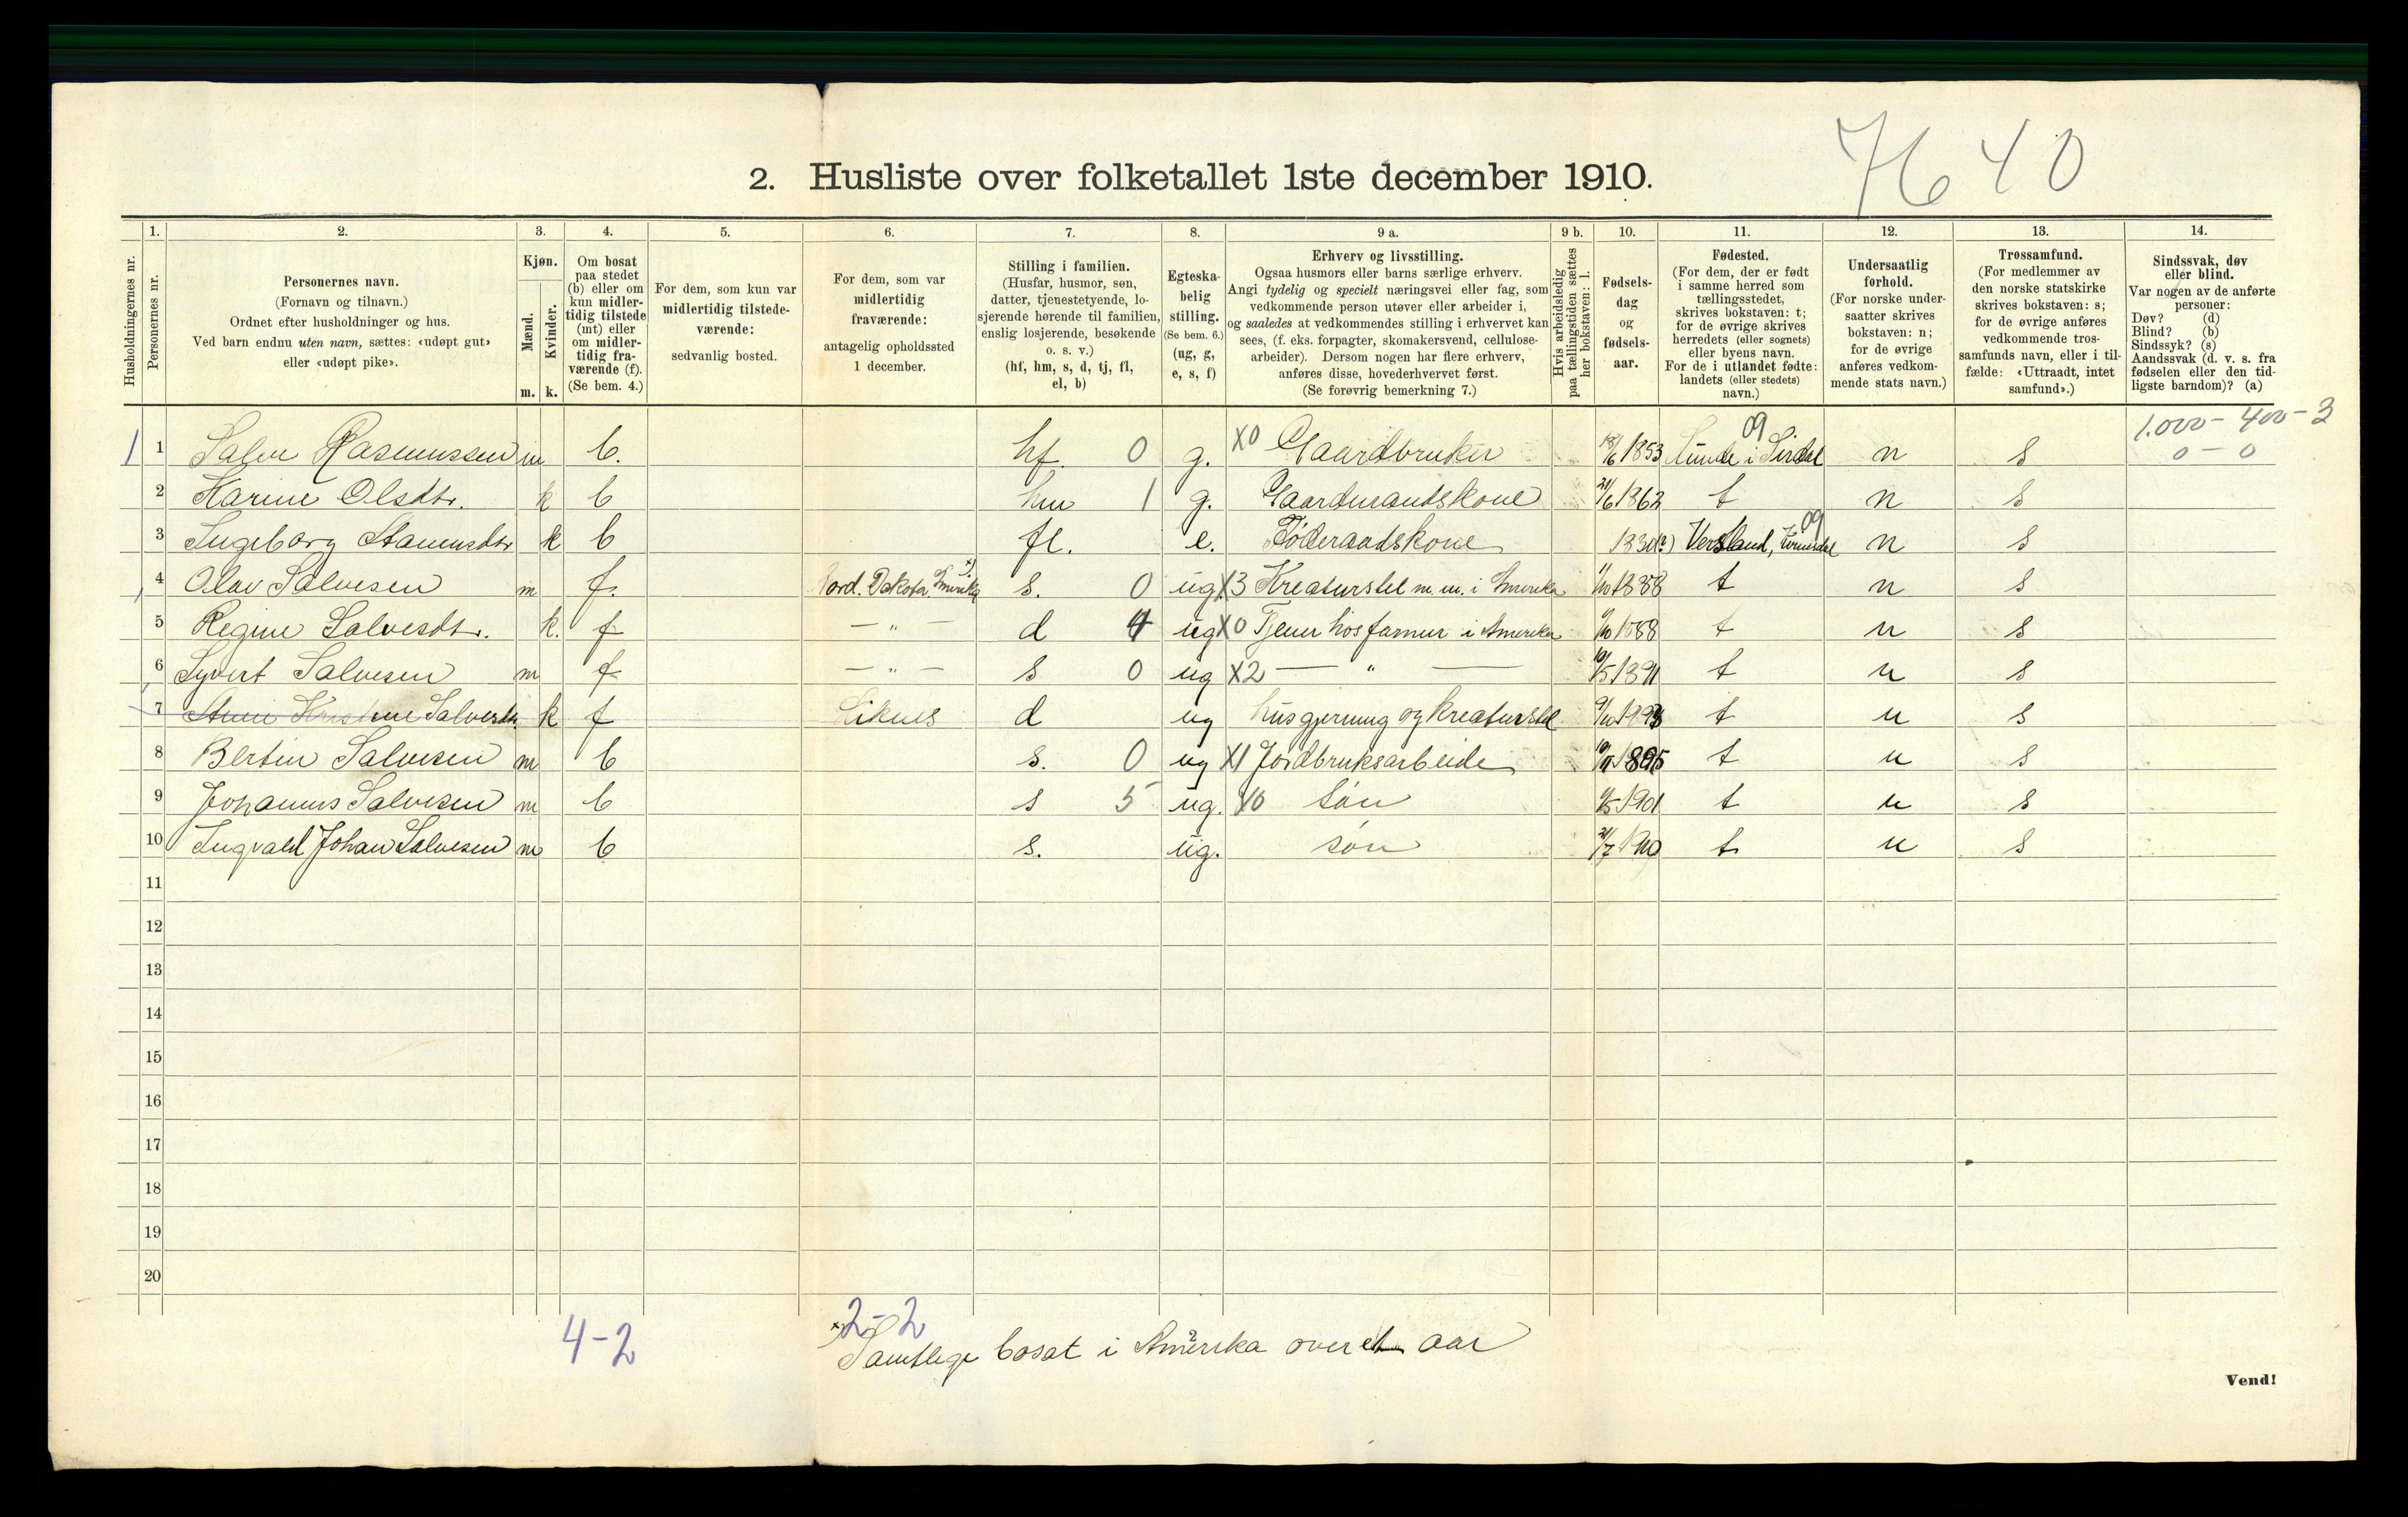 H 40
2. Husliste over folketallet 1ste december 1910.
Husholdningernes nr.
1. Personernes nr.
2. Personernes navn. (Fornavn og tilnavn.) Ordnet efter husholdninger og hus. Ved barn endnu uten navn, sættes: «udøpt gut» eller «udøpt pike».
3. Kjøn. Mænd. m. Kvinder. k.
4. Om bosat paa stedet (b) eller om kun midlertidig tilstede (mt) eller om midlertidig fraværende (f). (Se bem. 4.)
5. For dem, som kun var midlertidig tilstedeværende: sedvanlig bosted.
6. For dem, som var midlertidig fraværende: antagelig opholdssted 1 december.
7. Stilling i familien. (Husfar, husmor, søn, datter, tjenestetyende, losjerende hørende til familien, enslig losjerende, besøkende o. s. v.) (hf, hm, s, d, tj, fl, el, b)
8. Egteskabelig stilling. (Se bem. 6.) (ug, g, e, s, f)
9 a. Erhverv og livsstilling. Ogsaa husmors eller barns særlige erhverv. Angi tydelig og specielt næringsvei eller fag, som vedkommende person utøver eller arbeider i, og saaledes at vedkommendes stilling i erhvervet kan sees, (f. eks. forpagter, skomakersvend, cellulosearbeider). Dersom nogen har flere erhverv, anføres disse, hovederhvervet først. (Se forøvrig bemerkning 7.)
9 b. Hvis arbeidsledig paa tællingstiden sættes her bokstaven: l.
10. Fødselsdag og fødselsaar.
11. Fødested. (For dem, der er født i samme herred som tællingsstedet, skrives bokstaven: t; for de øvrige skrives herredets (eller sognets) eller byens navn. For de i utlandet fødte: landets (eller stedets) navn.)
12. Undersaatlig forhold. (For norske undersaatter skrives bokstaven: n; for de øvrige anføres vedkommende stats navn.)
13. Trossamfund. (For medlemmer av den norske statskirke skrives bokstaven: s; for de øvrige anføres vedkommende trossamfunds navn, eller i tilfælde: «Uttraadt, intet samfund».)
14. Sindssvak, døv eller blind. Var nogen av de anførte personer: Døv? (d) Blind? (b) Sindssyk? (s) Aandssvak (d. v. s. fra fødselen eller den tidligste barndom)? (a)
1 1 Salve Rasmussen m b. hf. 0 g. X0 Gaardbruker 18/6 1853 09 Lunde i Sirdal n s 1.000 - 400 - 3 0 - 0
2 Karine Olsdtr. k b hm 1 g. Gaardmandskone 21/6 1862 t n s
3 Ingeborg k b fl. e. Føderaadskone 1830(?) 09 n s
4 Olav Salvesen m f. Nord. Dakota Amerika x) s. 0 ug X3 Kreaturstel m. m. i Amerika 1/10 1888 t n s
5 Regine Salvesdtr. k. f — " — d 4 ug X0 Tjener hos farmer i Amerika 1888 t n s
6 Syvert Salvesen m f — " — s 0 ug X2 — " — 10/5 1891 t n s
7 Salvesdtr. k f Liknes d ug husgjerning og kreaturstel t n s
8 Bertin Salvesen m b s. 0 ug X1 Jordbruksarbeide 1895 t n s
9 Johannes Salvesen m b s 5 ug. X0 søn 1901 t n s
10 Ingvald Johan Salvesen m b s. ug. søn 21/7 1910 t n s
11
12
13
14
15
16
17
18
19
20
4-2 2-2
x) Samtlige bosat i Amerika over et 2 aar
Vend!